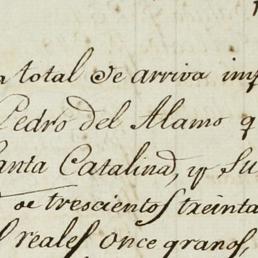 total de arriva imp
Pedro del Alamo q
Santa Catalina, y su
de trescientos treinta
reales once granos,